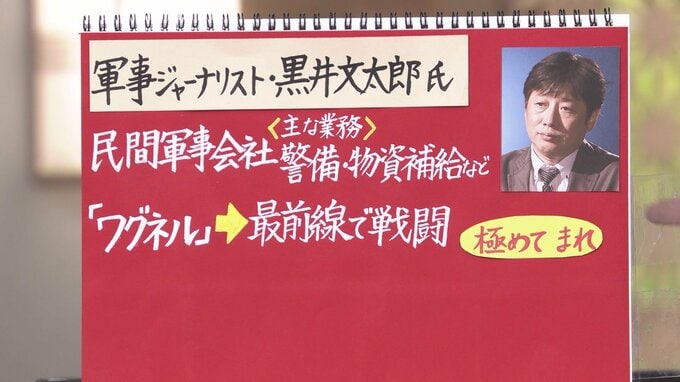 軍事ジャーナリスト・黒井文太郎氏
〈主な業務〉
民間軍事会社 警備・物資補給など
「ワグネル」➡最前線で戦闘 極めて まれ